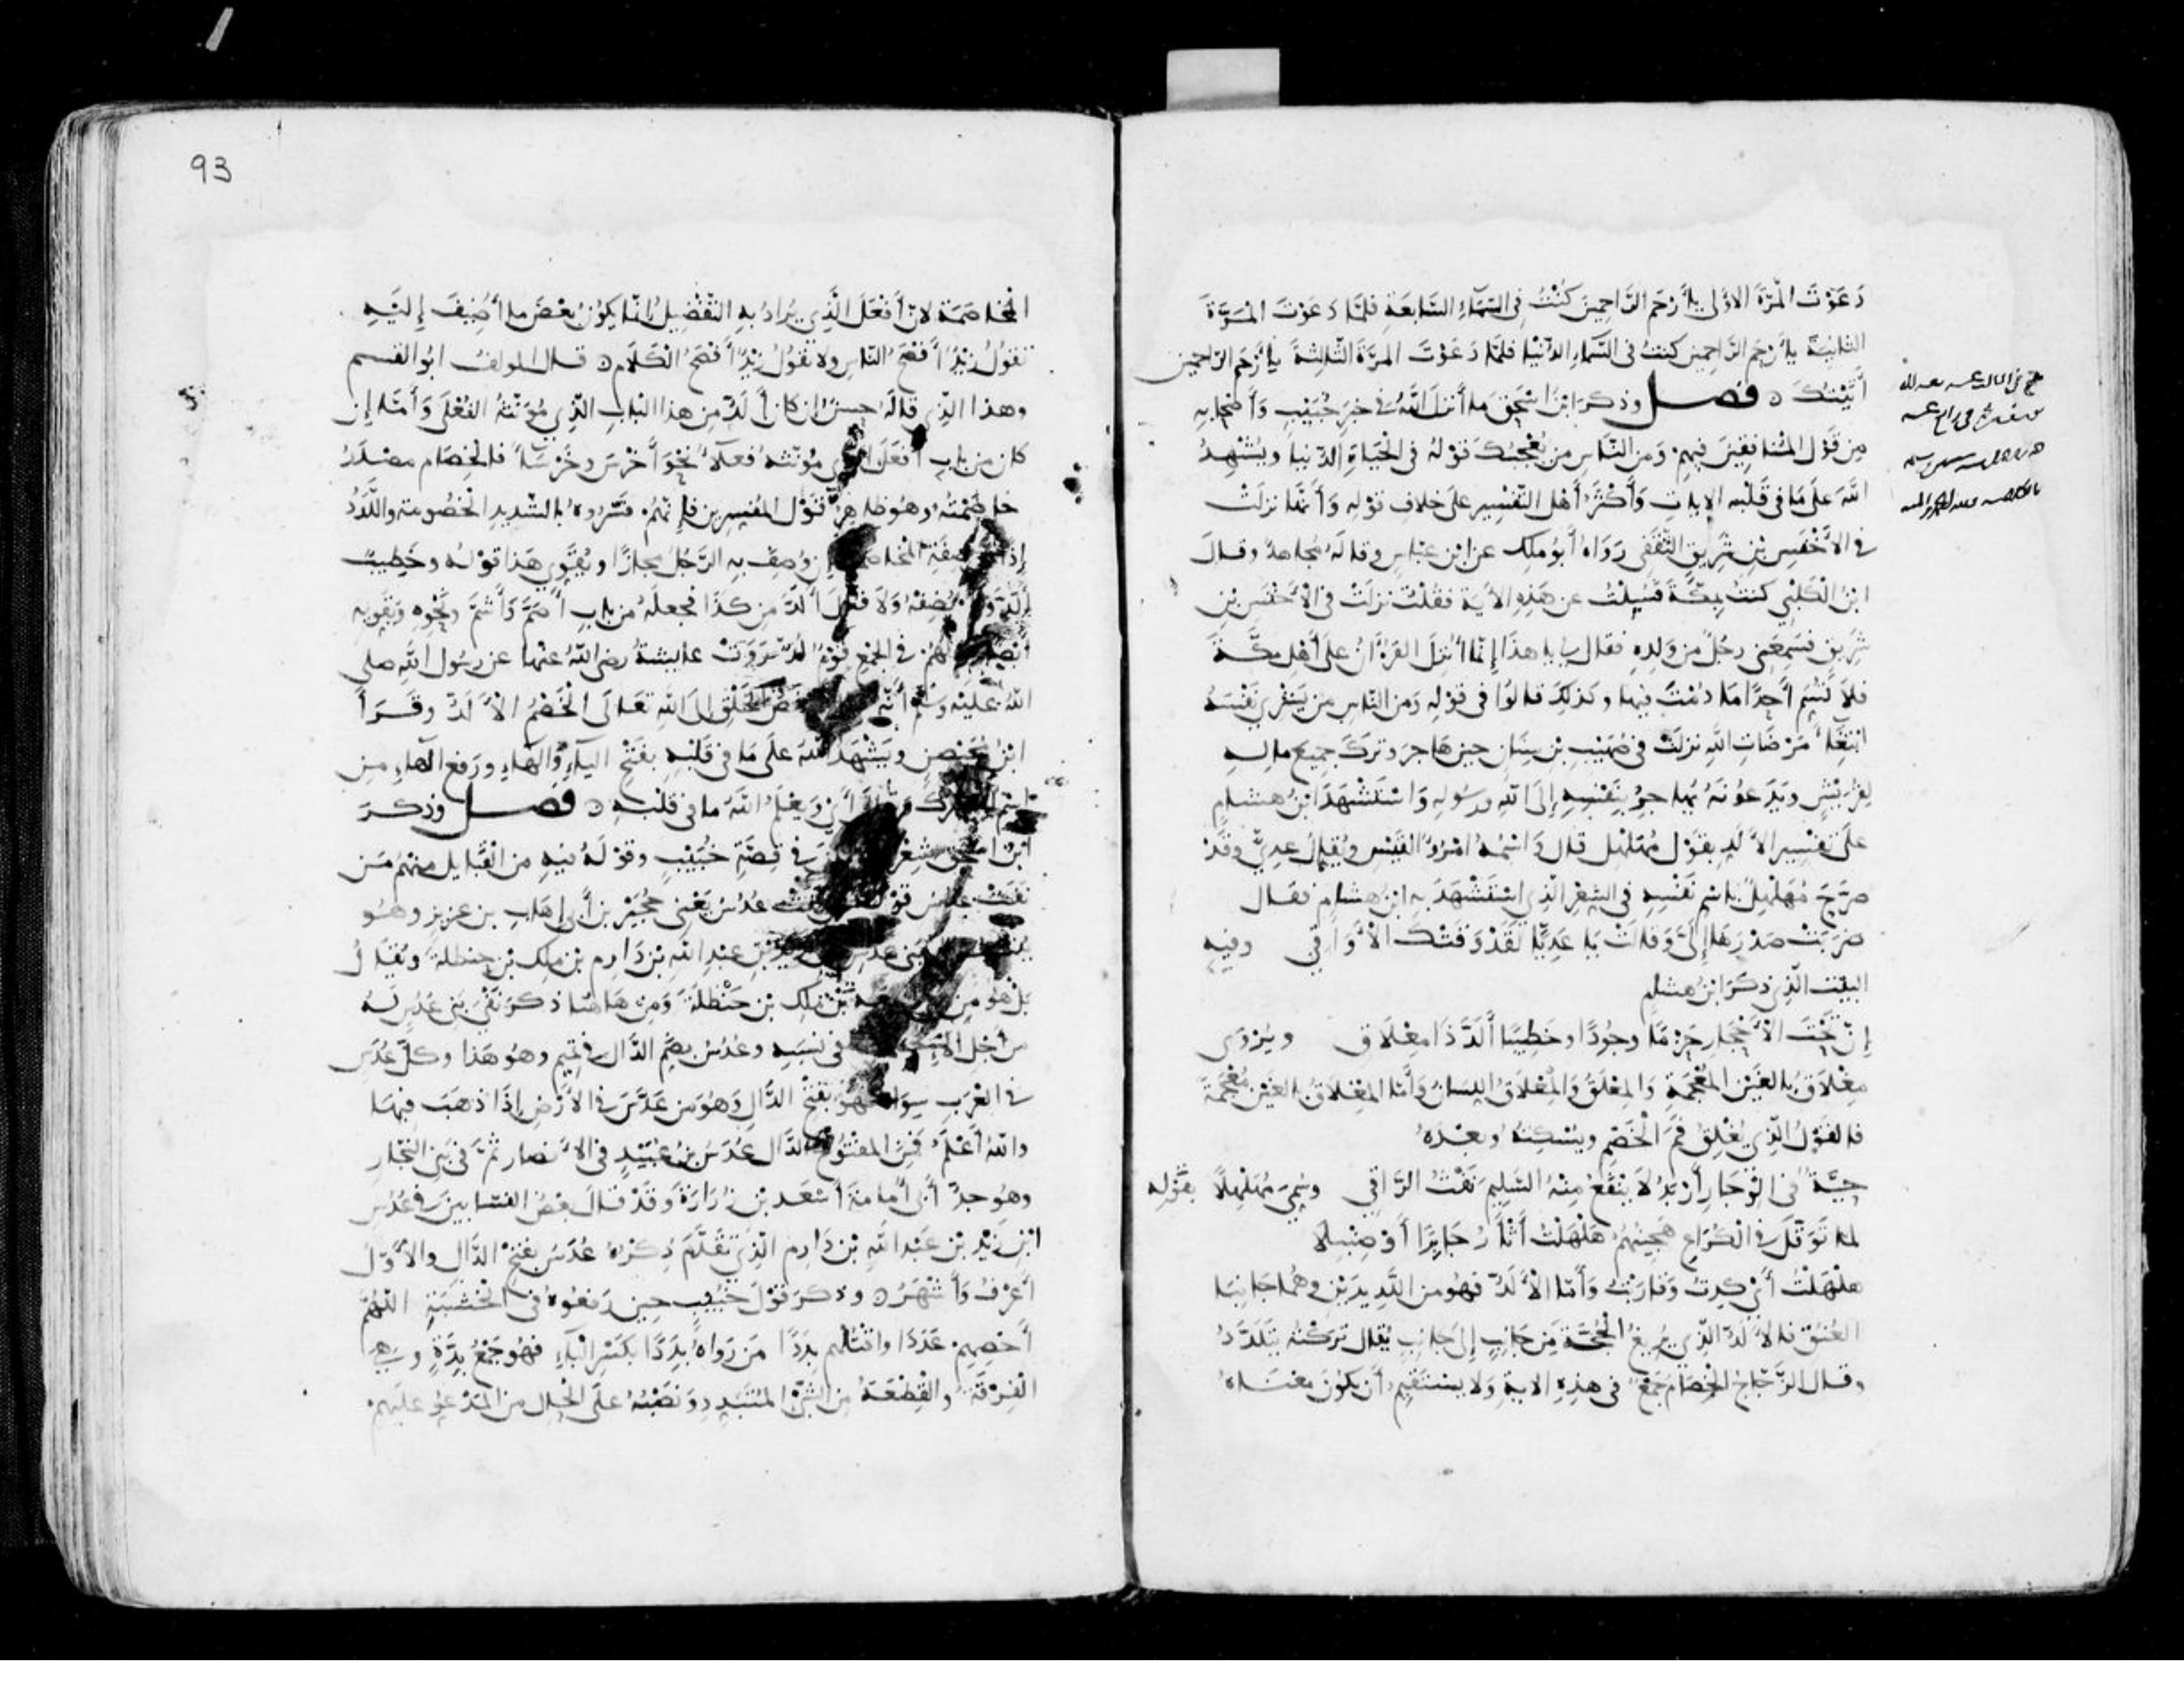 دَعَوْتَ المَرَّةَ الأولى يا أرْحَمَ الرَّاحِمِينَ كُنْتُ فى السَّمَاءِ السَّابِعَةِ فَلمَّا دَعَوْتَ المَرَّةَ
الثانِيَةَ يا أرحَمَ الرَّاحِمِينَ كنتُ فى السَّماءِ الدُّنْيا فلمَّا دَعَوْتَ المرَّةَ الثَّالِثَةَ يا أرْحَمَ الرَّاحمين
أتَيْتُكَ ن فصل وذكرَ ابنُ اسْحٰقَ ما أنزلَ اللّٰهُ فى خبَرِ خُبَيْبٍ وَأصْحَابِهِ
مِن قَوْل المُنَافِقِينَ فِيهِمْ وَمِن النَّاسِ مَن يُعْجِبُكَ قَوْلهُ فى الْحَيَاةِ الدّنيا ويُشْهِدُ
اللّٰهَ علَى مَا فى قَلْبِه الايات وَأكْثَرُ أهْل التّفْسِير علَى خلافِ قوْلِهِ وَأنَّها نزلَتْ
فى الأخْنَسِ بْنِ شَرِيقٍ الثَّقَفِى رَوَاهُ أبُو ملِك عن ابْنِ عبّاسٍ وقالَهُ مُجاهدٌ وقالَ
ابْنُ الْكَلْبِى كنتُ بمَكّةَ فَسُيِلْتُ عن هَذِهِ الأيَة فقلْتُ نزلَتْ فى الأخْنَسِ بْنِ
شَرِيقٍ فسَمِعَنِى رجُلٌ مِنْ وَلَدِهِ فقال لى يا هذا إنَّما أُنْزِلَ القُرْآنُ علَى أهْل مكّةَ
فلا تُسَمِّ أحَدًا ما دُمْتَ فيها وكذلِكَ قالوُا فى قوْلِهِ وَمن النّاسِ من يَشْرِى نَفْسَهُ
ابْتِغَاءَ مَرْضَاتِ اللّٰهِ نزلَتْ فى صُهَيْبِ بْنِ سِنَانٍ حين هَاجرَ وَترَكَ جميعَ مالِهِ
لِقُرَيْشٍ وَيَدَعُونَهُ يُهاجِرُ بِنَفْسِهِ إلَى اللّٰهِ ورسُولِهِ وَاسْتَشْهَدَ ابْنُ هشام
علَى تفسِير الألَدِّ بقَوْل مُهَلْهِلٍ قالَ وَاسْمُهُ امْرُؤُ القَيْسِ ويُقالُ عدِىٌّ وقَدْ
صرَّحَ مُهَلْهِلٌ باسْمِ نَفْسِهِ فى الشِعْرِ الّذِى اسْتَشْهَدَ بِهِ ابْنُ هشامٍ فقال
ضَرَبَتْ صَدْرَهَا إلَىَّ وَقالتْ يَا عَدِيًّا لَقَدْ وَقَتْكَ الأوَاقِى وفيه
البيْت الّذِى ذكرَ ابْنُ هشامٍ
إنّ تَحْتَ الأحْجَارِ حَزْمًا وجُودًا وخَطِيبًا ألَدَّ ذَا مِعْلَاق ويُرْوَى
مِغْلاَقٌ بالغَيْن المُعْجَمَةِ وَالمِعْلَقُ وَالمِعْلاَقُ اللِسَانُ وَأمَّا المِغْلاَقُ بالغَيْن مُعْجَمَةً
فالقَوْلُ الّذِى يُغْلِقُ فَمَ الْخَصْمِ ويُسْكِتهُ وبَعْدَهُ
حيَّةٌ فى الوِجَارِ أرْبَدُ لاَ يَنْفَعُ مِنْهُ السَّلِيمَ نَفْثُ الرَّاقِى وسُمِىَ مُهَلْهِلاً بقَوْلِهِ
لما توَقَّلَ فى الْكُرَاعِ هَجِينُهُمْ هَلْهَلْتُ أثْأرُ جَابِرًا أوْ صِنْبِلا
هلْهَلْتُ أىْ كِدتُ وَقارَبْتُ وَأمّا الألَدُّ فهُو من اللَّدِيدَيْنِ وهُما جَانِبَا
العُنُقِ فالألَدُّ الّذِى يُرِيغُ الْحُجَّةَ مِن جَانِبٍ إلَى جَانِبٍ يُقالُ ترَكْتُهُ يَتَلَدَّدُ
وقال الزّجّاجُ الخِصَامُ جَمْعٌ فى هذِهِ الاية وَلا يسْتَقِيمُ أن يكُونَ معْنَاهُ
93
الْمخَاصَمَة لانّ أفْعَلَ الّذِى يُرَادُ بِهِ التَّفْضِيلُ إنّما يكُونُ بعْضَ ما أُضِيفَ إلَيْهِ
تقُولُ زيْدٌ أفْصَحُ النّاسِ ولا تقُولُ زيْدٌ أفصَحُ الْكَلَامِ ن قال المولفُ ابُو القسم
وهذا الّذِى قالَهُ حسَنٌ ان كانَ ألَدُّ من هذا البابِ الّذِى مُؤَنّثُهُ الفُعْلَى وَأمّا إن
كان من بابِ أفْعَلَ الّذِى مُؤَنّثهُ فعْلاَءُ نَحْوَ أخْرَسَ وخَرْسَآءَ فالخِصَام مصْدَرُ
خاصَمْتُهُ وهُو ظاهِرُ قَوْل المُفَسِرِين فإنّهُم فسّرُوه بالشّديدِ الْخصُومةِ واللَّدَدُ
إذًا صفَةِ المُخاصَمَة وإن وُصِفَ بِهِ الرّجُلُ مجازًا ويُقَوِى هَذا قوْلهُ وخَطِيبًا
ألَدَّ وَلَمْ يُضِفْهُ وَلا قالَ ألَدَّ مِن كذَا فجَعلَهُ من بابِ أصَمَّ وَأشَمَّ ونَحْوِهِ ويُقَوِيهِ
أيضًا قَوْلهُمْ فى الجَمْعِ قَوْمًا لُدًّا ورَوَتْ عايشةُ رضى اللّٰهُ عنْها عن رسُول اللّٰهِ صلى
اللّٰهُ علَيْهِ وسَلّم أنّهُ الْخَلْقِ الَى اللّٰهِ تعَالَى الْخَصْمُ الألَدُّ وقَرَأ
ابْنُ مُحَيْصِنٍ ويَشْهَدُ اللّٰهُ علَى مَا فى قَلْبِهِ بفَتْحِ اليَاءِ وَالهَاءِ ورَفعِ الهاءِ من
أىْ وَيَعْلَمُ اللّٰهُ ما فى قلْبِه ن فصل وذكرَ
ابْنُ اسْحٰقَ شِعْرَ فى قِصّةِ خُبَيْبٍ وقوْلَهُ فيهِ من القبَايل منهُم مَن
نفَتْ عدُسُ قوْلهُ عدُسُ يَعْنِى حُجَيْرَ بن أبى إهَابٍ بن عزيزٍ وهُو
عدُسِ بْنِ زيد بْنِ عبْدِ اللّٰهِ بْنِ دَارِم بن ملِك بن حنظلة ويُقَالُ
بلْ هُو مِن بْنِ ملِك بن حَنْظلَةَ وَمِن هَاهُنَا ذكرَ نَفْىَ بَنِى عُدُسٍ لهُ
من أجْل فى نسَبِهِ وعُدُسُ بضَمِّ الدَّال فى تَمِيم وهُو هَذا وكلُّ عُدَسٍ
فى العَرَبِ سِوَاهُ فهُو بفَتْحِ الدّالِ وَهُو مِن عَدَسَ فى الأرْضِ إذَا ذهَبَ فِيهَا
واللّٰهُ أعْلَمُ فمِنَ المفتُوحِ الدّال عُدَسُ بْنُ عُبَيْدٍ فى الأنصار ثمّ فى بَنِى النّجّارِ
وهُو جدُّ أبى أُمامةَ أسْعَد بْنِ زُرَارَةَ وقَدْ قالَ بعضُ النسّابِينَ فى عُدُسِ
ابْنِ زَيْدِ بْنِ عَبْدِ اللّٰهِ بْنِ دَارِم الّذِى تقَدَّمَ ذِكْرُهُ عُدَسٌ بفَتْحِ الدّالِ والأوّلُ
أعْرَفُ وَأشْهَرُ ن وذكرَ قَوْلَ خُبَيْبٍ حين رَفعُوهُ فى الْخشَبَةِ اللّٰهُمَّ
أحْصِهِمْ عَدَدَا واقْتُلْهم بدَدَا مَن رَوَاهُ بِدَدًا بكَسْرِ الْبَاءِ فهُو جَمْعُ بِدّةٍ وهى
الْفِرْقَةُ والقِطْعَةُ مِنَ الشّىْءِ المُتَبَدِدِ وَنصْبُهُ علَى الْحالِ من المَدْعُوِ علَيْهِم